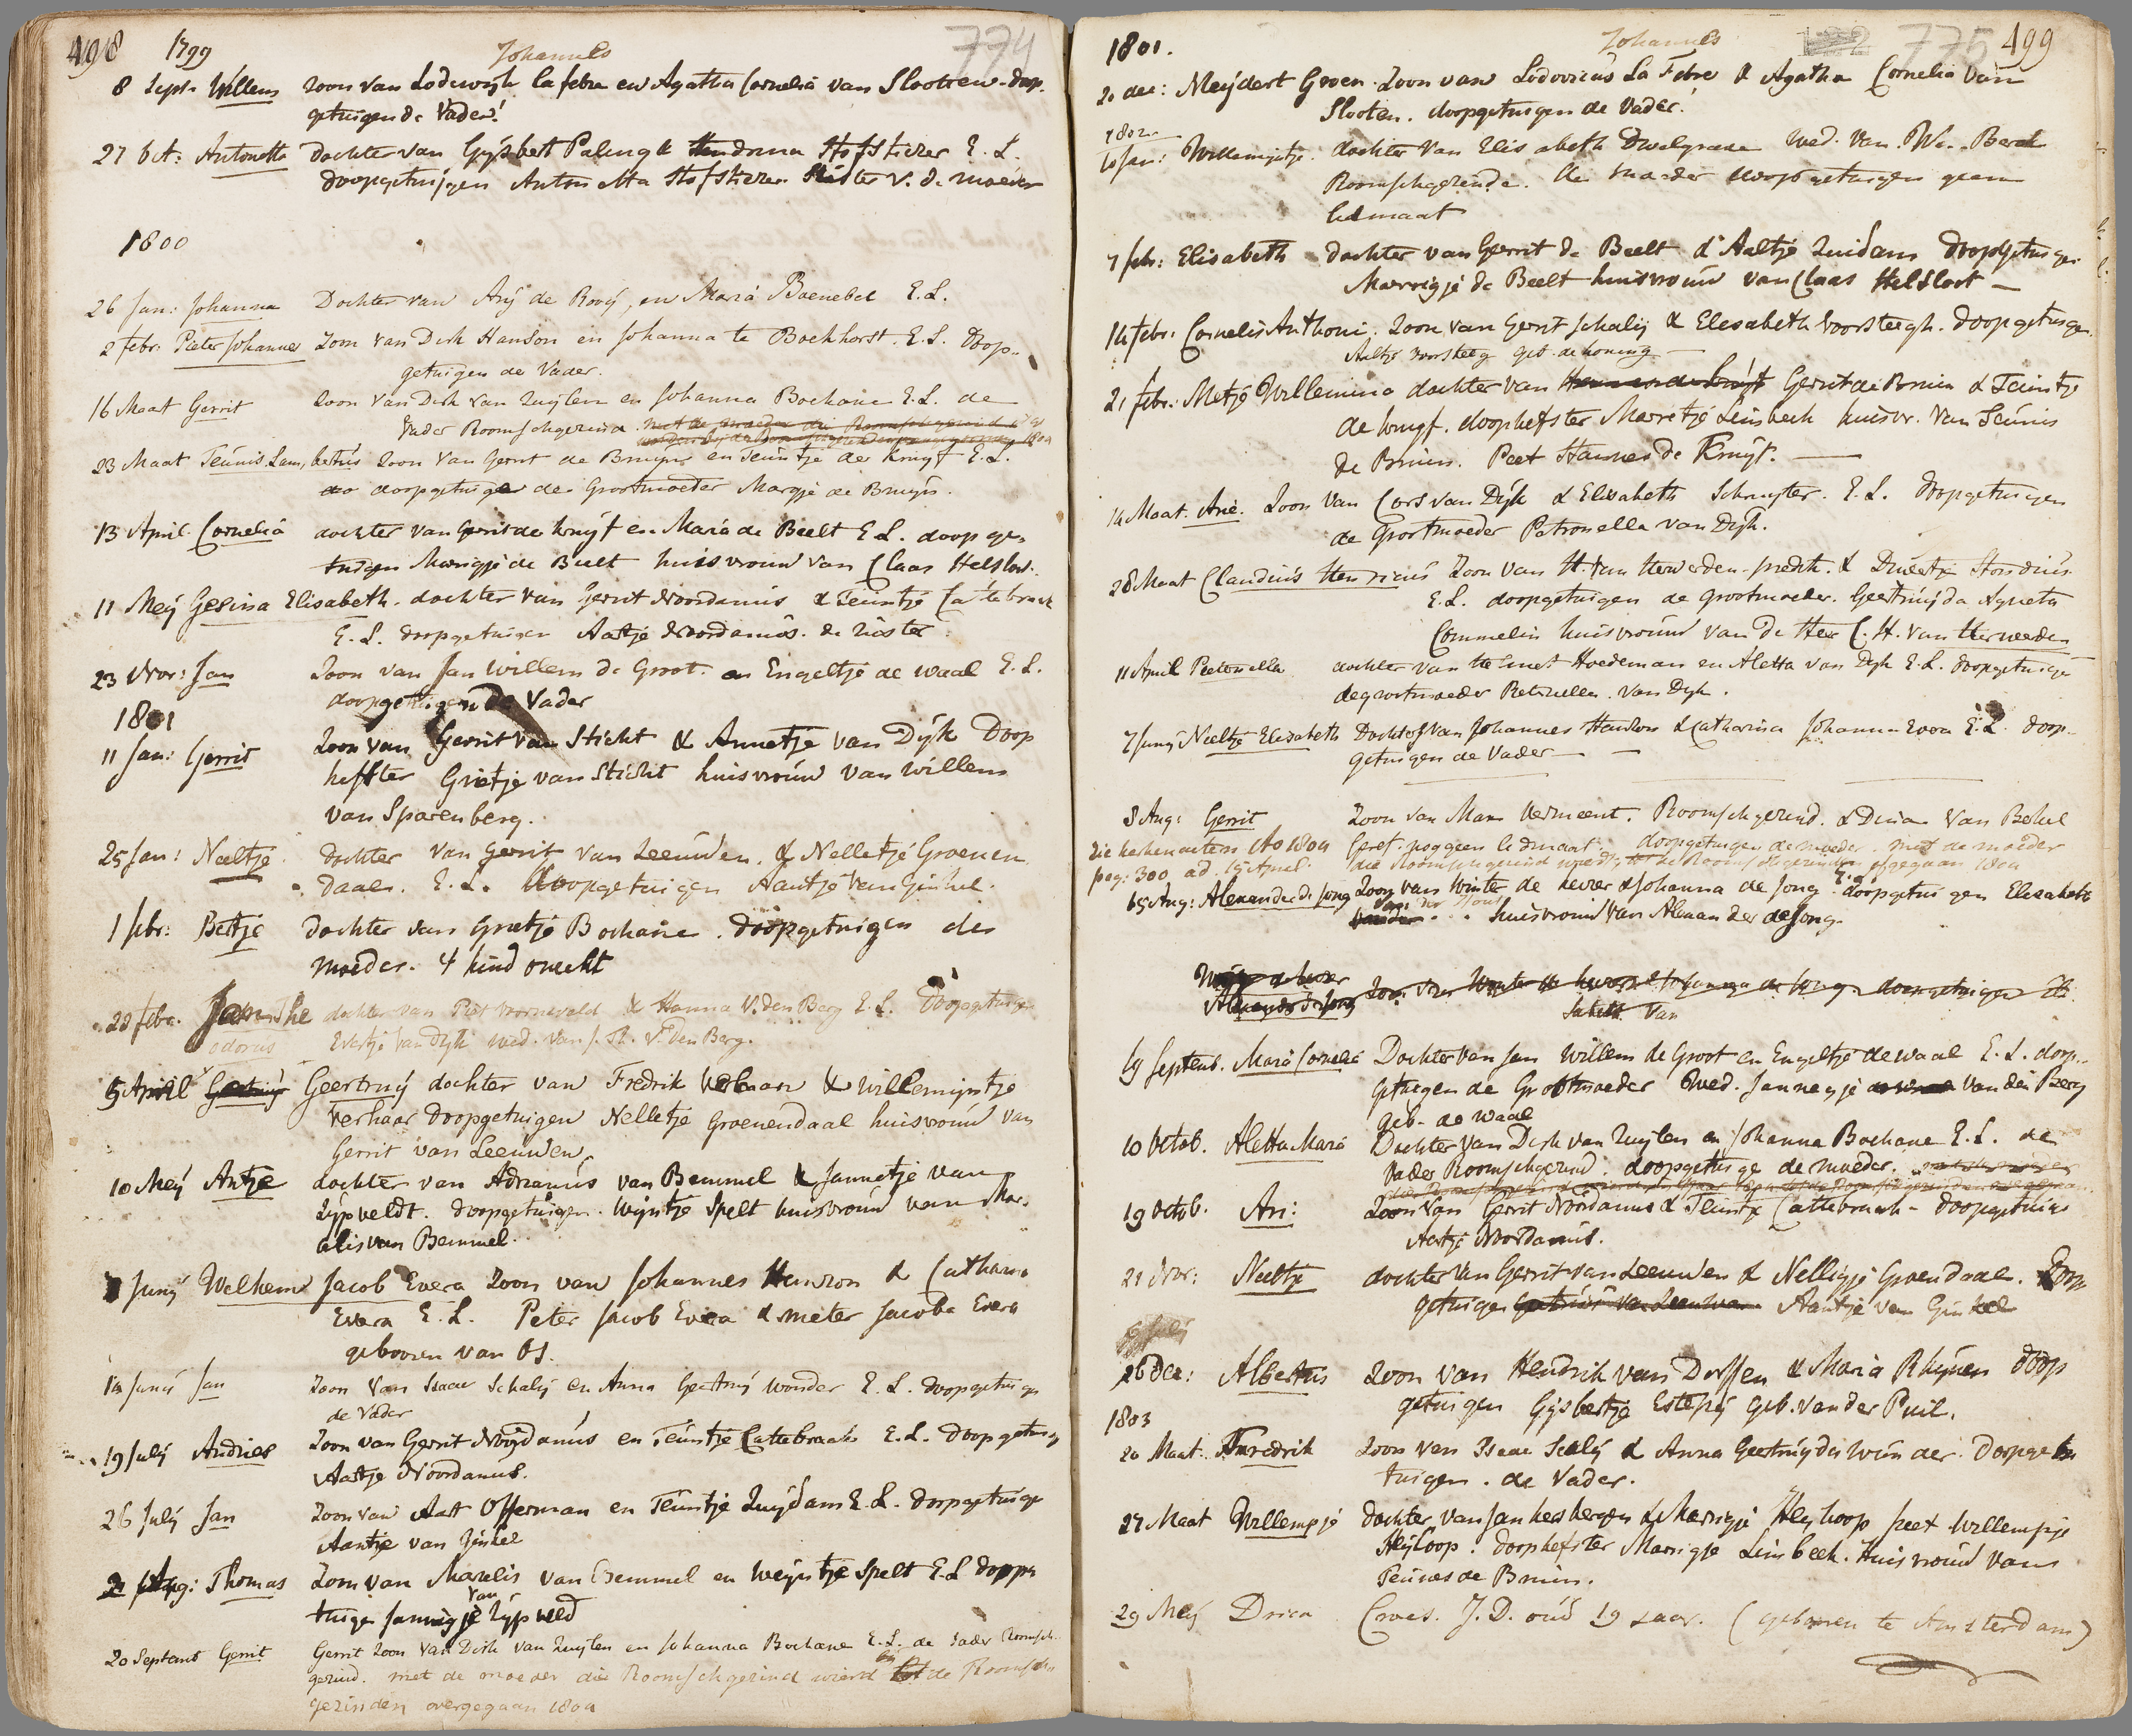 498 1799 Johannes 774
8 Sept. Willem zoon van Lodewyk la febre en Agatha Cornelia van Slooten. doop
getuigen de Vader.
27 Oct: Antonetta Dochter van Gysbert Paling & Hendrina Stofstiezer E. L.
Doopgetuigen Antonetta Stofstiezer Suster v. d. moeder
1800
26 Jan: Johanna Dochter van Arÿ de Rooÿ, en Maria Boenebel E.L.
2 febr: Pieter Johannes Zoon van Dirk Hanson en Johanna te Bockhorst. E.L. Doop-
getuigen de Vader.
16 Maat Gerrit Zoon van Dirk van Zuylen en Johanna Bochane E.L. de
Vader Roomschgezind.
23 Maat Teunis Lambertus Zoon van Gerrit de Bruyn en Teuntje de Kruyf E.L.
doopgetuige de Grootmoeder Margje de Bruyn.
13 April Cornelia dochter van Gerrit de Kruyf en Maria de Beelt E.L. doop ge-
tuigen Marrigje de Beelt huisvrouw van Claas Helsloot.
11 Meÿ Gesina Elisabeth. dochter van Gerrit Noordanus & Teuntje Cattebraak
E. L. doopgetuigen Aartje Noordanus. de Zuster.
23 Nov: Jan Zoon van Jan Willem de Groot. en Engeltje de Waal E.L.
doopgetuigen de Vader
1801
11 Jan: Gerrit Zoon van Gerrit van Sticht & Annetje van Dÿk Doop
hefster Grietje van Sticht huisvrouw van Willem
van Sparenberg.
25 Jan: Neeltje Dochter van Gerrit van Leeuwen. & Nelletje Groenen
daal. E. L. Doopgetuigen Aantje van Ginkel.
1 febr: Betje Dochter van Grietje Bochane. Doopgetuigen de
moeder. 4 kind onecht
20 febr. Jan The dochter van Piet Vorneveld & Hanna V. den Berg E.L. Doopgetuige
odorus Evertje van Dyk wed. van J. V. den Berg.
5 April Geertruÿ dochter van Fredrik Verhaar & Willemyntje
Verhaar Doopgetuigen Nelletje Groenendaal huisvrouw van
Gerrit van Leeuwen.
10 Meÿ Antje dochter van Adrianus van Bemmel & Jannetje van
Zÿpveldt. doopgetuigen. Wyntje Spelt huisvrouw van Mar-
celis van Bemmel.
Junÿ Welhem Jacob Evera Zoon van Johannes Hanson & Catharina
Evera E. L. Peter Jacob Evera & meter Jacoba Evera
gebooren van Os.
Junÿ Jan Zoon van Isaac Schalÿ en Anna Geertruÿ Wonder E.L. doopgetuige
de Vader
19 Julÿ Andries Zoon van Gerrit Noordanus en Teuntje Cattebraak E.L. doopgetuig
Aartje Noordanus.
26 Julÿ Jan Zoon van Aart Offerman en Teuntje Zuÿdam E.L. doopgetuige
Aantje van Ginkel
2 Aug: Thomas Zoon van Marelis van Bemmel en Weyntje Spelt E.L doopge
tuige Jannigje van Zÿpveld
20 Septemb Gerrit Gerrit zoon van Dirk van Zuylen en Johanna Bochane E.L. de Vader Roomsch-
gezind. met de moeder die Roomschgezind wierd bÿ de Roomsch
gezinden overgegaan 1809
1801. Johannes 775 499
20 dec: Meÿdert Groen. Zoon van Lodovicus La Febre & Agatha Cornelia van
Slooten. doopgetuigen de Vader.
1802.
10 Jan: Willemyntje. dochter van Elisabeth Dwelgraae wed. van Wm. Berck
Roomschgezinde. de moeder doopgetuigen geen
ledmaat
7 febr: Elisabeth dochter van Gerrit de Beelt & Aaltje Zuidam Doopgetuige
Marrigje de Beelt huisvrouw van Claas Helsloot
14 febr: Cornelis Anthoni. Zoon van Gerrit Schalÿ & Elesabeth Voorsteegh. doopgetuige
Aaltje Voorsteeg geb. de Koning
21 febr: Metje Willemina dochter van Gerrit de Bruin & Teuntje
de Kruyf. doophefster Marretje Leinbeek huisvr. van Teunis
de Bruin. Peet Hannes de Kruyf.
14 Maat. Arie. Zoon van Cors van Dÿk & Elisabeth Schuyter. E. L. doopgetuigen
de Grootmoeder Petronella van Dyk.
28 Maat Claudius Henricus Zoon van H. van Herwerden - predik. & Drieetje Hondius
E. L. doopgetuigen de grootmoeder. Geertruÿda Agneta
Commelin huisvrouw van de Heer C. H. van Herwerden
11 April Pieternella dochter van Hoedeman en Aletta van Dyk E.L. doopgetuige
de grootmoeder Petronella van Dyk.
7 Junÿ Neeltje Elisabeth Dochter van Johannes Hanson & Catharina Johanna Evera E.L. doop-
getuigen de Vader
8 Aug: Gerrit Zoon van Man Vermeent. Roomschgezind. & Dina van Bekel
zie kerkenacten Ao 1809 Geref. nog geen ledmaat. doopgetuigen de moeder. met de moeder
pag: 300 ad. 15 April. die Roomschgezind wierd, de Roomschgezinden overgegaan 1809
15 Aug: Alexander de Jong Zoon van Winter de Keizer & Johanna de Jong E.L. doopgetuigen Elisabeth
van der huisvrouw van Alexander de Jong.
Alexander de Jong Zoon van Winter de Keizer & Johanna de Jong. doopgetuigen Eli
sabeth van
19 Septemb. Maria Cornelia Dochter van Jan Willem de Groot en Engeltje de Waal E. L. doop-
getuigen de Grootmoeder Wed. Jannegje van den Berg
geb. de Waal
10 Octob. Aletta Maria Dochter van Dirk van Zuylen en Johanna Bochane E.L. de
Vader Roomschgezind. doopgetuige de moeder.
19 Octob. Ari: Zoon van Gerrit Noordanus & Teuntje Cattebraak - doopgetuige
Aartje Noordanus.
21 Nov: Neeltje dochter van Gerrit van Leeuwen & Nelligje Groendaal. Doop
getuigen Aantje van Ginkel
26 Dec: Albertus Zoon van Hendrik van Dolssen & Maria Rhynen doop
getuigen Gysbertje Estepÿ geb. van der Puil.
1803
20 Maat. Fredrik Zoon van Isaac Scalÿ & Anna Geertruÿda Wunder. doopge
tuigen. de Vader.
27 Maat Willempje Dochter van Jan Kersbergen & Marrigje Heyhoop peet Willempje
Heÿkoop. doophefster Marrigje Leinbeek. Huisvrouw van
Teunes de Bruin.
29 Meÿ Drica Croes. J. D. oud 19 Jaar. (gebooren te Amsterdam)